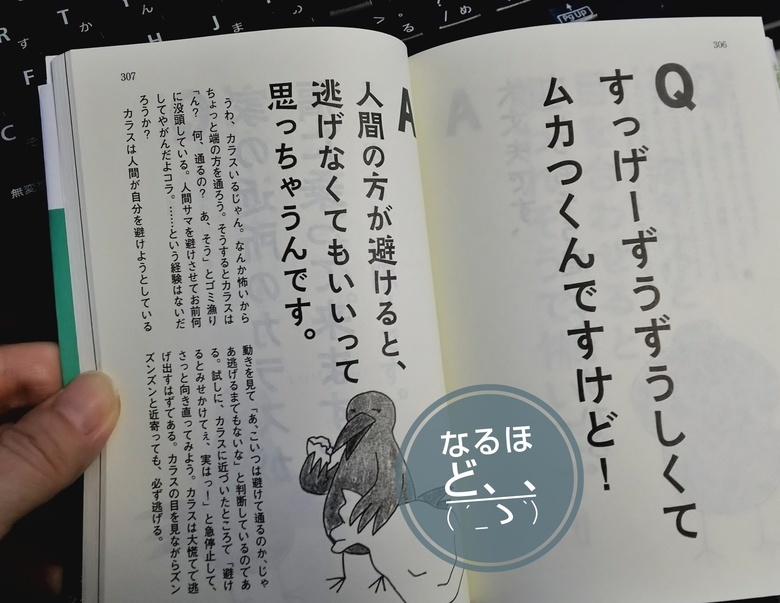 306
Q
すっげーずうずうしくて
ムカつくんですけど！
307
A
人間の方が避けると、
逃げなくてもいいって
思っちゃうんです。
うわ、カラスいるじゃん。なんか怖いから
ちょっと端の方を通ろう。そうするとカラスは
「ん？　何、通るの？　あ、そう」とゴミ漁り
に没頭している。人間サマを避けさせてお前何
してやがんだよコラ。……という経験はないだ
ろうか？
カラスは人間が自分を避けようとしている
動きを見て「あ、こいつは避けて通るのか、じゃ
あ逃げるまでもないな」と判断しているのであ
る。試しに、カラスに近づいたところで「避け
るとみせかけてぇ、実はっ！」と急停止して、
さっと向き直ってみよう。カラスは大慌てで逃
げ出すはずである。カラスの目を見ながらズン
ズンズンと近寄っても、必ず逃げる。
なるほ
ど、、
PgUP
無変